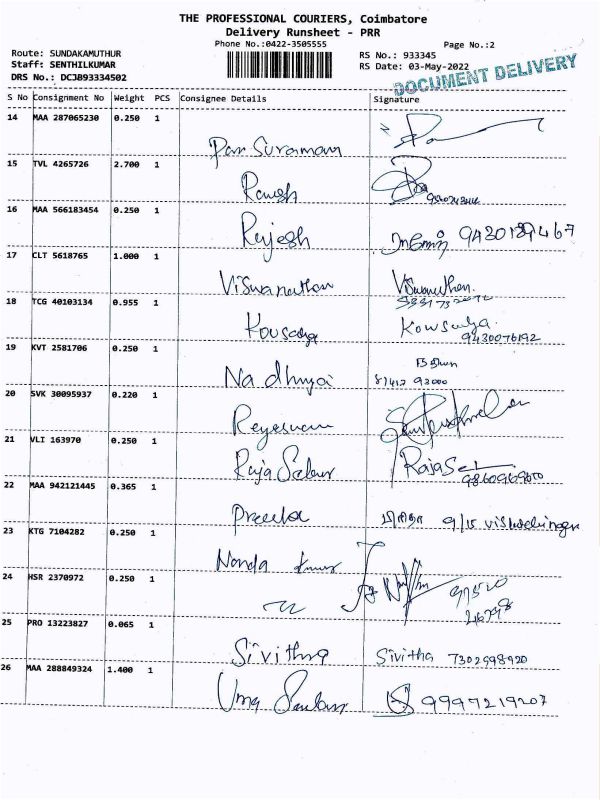 THE PROFESSIONAL COURIERS, Coimbatore
Delivery Runsheet - PRR
Phone No.:0422-3505555
Page No.:2
Route: SUNDAKAMUTHUR
RS No.: 933345
Staff: SENTHILKUMAR
RS Date: 03-May-2022
DRS No.: DCJB93334502
DOCUMENT DELIVERY
S No Consignment No Weight PCS Consignee Details Signature
14 MAA 287065230 0.250 1
15 TVL 4265726 2.700 1
Ramesh
16 MAA 566183454 0.250 1
Rajesh
17 CLT 5618765 1.000 1
Viswanathan Viswanathan
18 TCG 40103134 0.955 1
Kousalya Kowsalya
9430076192
19 KVT 2581706 0.250 1
81412 92000
20 SVK 30095937 0.220 1
21 VLI 163970 0.250 1
22 MAA 942121445 0.365 1
Preetha
23 KTG 7104282 0.250 1
Nanda Kumar
24 HSR 2370972 0.250 1
25 PRO 13223827 0.065 1
Sivitha Sivitha 7302998920
26 MAA 288849324 1.400 1
Uma 9997219207